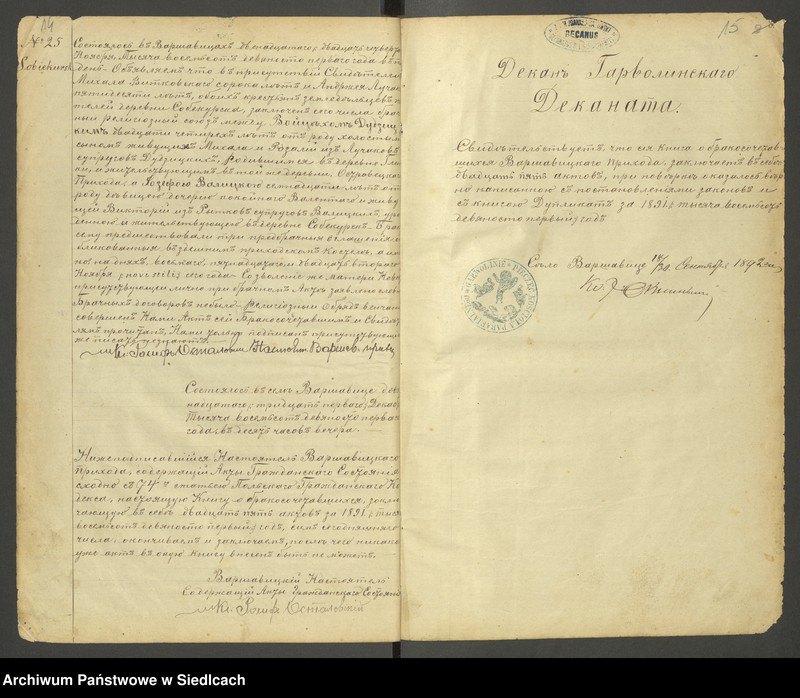 14
№ 25
Sobiekursk
Состоялось въ Варшавицахъ двѣнадцатаго/двадцать четверт
Ноября Мѣсяца восемьсотъ девяносто перваго года въ
день. Объявляемъ что въ присутствіи Свидѣтелей
Михала Витковскаго сорока лѣтъ и Андржея Лучак
пятидесяти лѣтъ, обоихъ крестьянъ земледѣльцевъ, жи
телей деревни Собекурска, заключенъ сего числа брач
ный религіозный союзъ между, Войцѣхомъ Дудзиц
кимъ двадцати четырехъ лѣтъ отъ роду холостым
сыномъ живущихъ Михала и Розаліи изъ Лучаковъ
супруговъ Дудзицкихъ, родившимся въ деревнѣ
и жительствующимъ въ той же деревнѣ Островецкаго
Прихода; а Юзефою Валицкою семнадцати лѣтъ от
роду дѣвицею дочерью покойнаго Валентаго и живу
щей Викторіи изъ Витковъ супруговъ Валицкихъ, уро
жденною и жительствующею въ деревнѣ Собекурскъ. Браку
сему предшествовали три предбрачныя оглашенія оп
убликованныя въ здѣшнемъ приходскомъ Костелѣ, а имен
но: въ дняхъ, восьмаго, пятнадцатаго, двадцать втораго
Ноября novi stili сего года. Созволеніе же матери Невѣ
присутствующей лично при брачномъ Актѣ заявлено слове
Брачныхъ договоровъ небыло. Религіозный обрядъ вѣнчан
совершенъ Нами. Актъ сей Бракосочетавшимся и Свидѣ
лямъ прочитанъ, Нами только подписанъ присутствующі
же писать незнаютъ.
Кс. Іосифъ Осталовскій Настоятель Варшав. прихо
Состоялось въ селѣ Варшавице две
надцатаго/тридцать перваго/Декаб
тысяча восемьсотъ девяносто перваго
года въ десять часовъ вечера.
Нижеподписавшійся Настоятель Варшавицкаго
Прихода, содержащій Акты Гражданскаго Состоянія
сходно съ 74 статьею Польскаго Гражданскаго Ко
декса, настоящую Книгу о бракосочетавшихся, заклю
чающую въ себѣ двадцать пять актовъ за 1891/тыс
восемьсотъ девяносто первый/годъ, симъ сегодняшняго
числа, окончиваетъ и заключаетъ, послѣ чего никако
уже актъ въ оную книгу внесенъ быть не можетъ.
Варшавицкій Настоятель
Содержащій Акты Гражданскаго Состояні
Кс. Іосифъ Осталовскій
15
DECANUS
Деканъ Гарволинскаго
Деканата.
Свидѣтельствуетъ, что сія книга о бракосочетав-
шихся Варшавицкаго Прихода, заключаетъ въ себѣ
двадцать пять актовъ, при повѣркѣ оказалось вѣр
но написанною съ постановленіями законовъ и
съ книгою Дупликатъ за 1891/тысяча восемьсотъ
девяносто первый/годъ
Село Варшавице 18/30 Сентября 1892 года
Archiwum Państwowe w Siedlcach